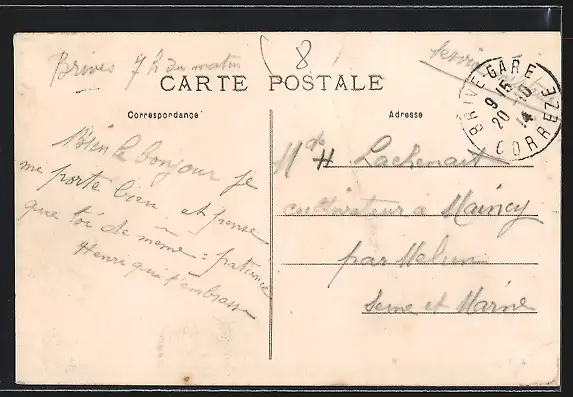 Brives 7h du matin
8
CARTE POSTALE
Correspondance
Adresse
BRIVE-GARE
9 15
20 10
14
CORREZE
Bien le bonjour je
me porte bien et pense
que toi de meme : patience
Henri qui t'embrasse
Md H Lachenait
cultivateur a Maincy
par Melun
Seine et Marne